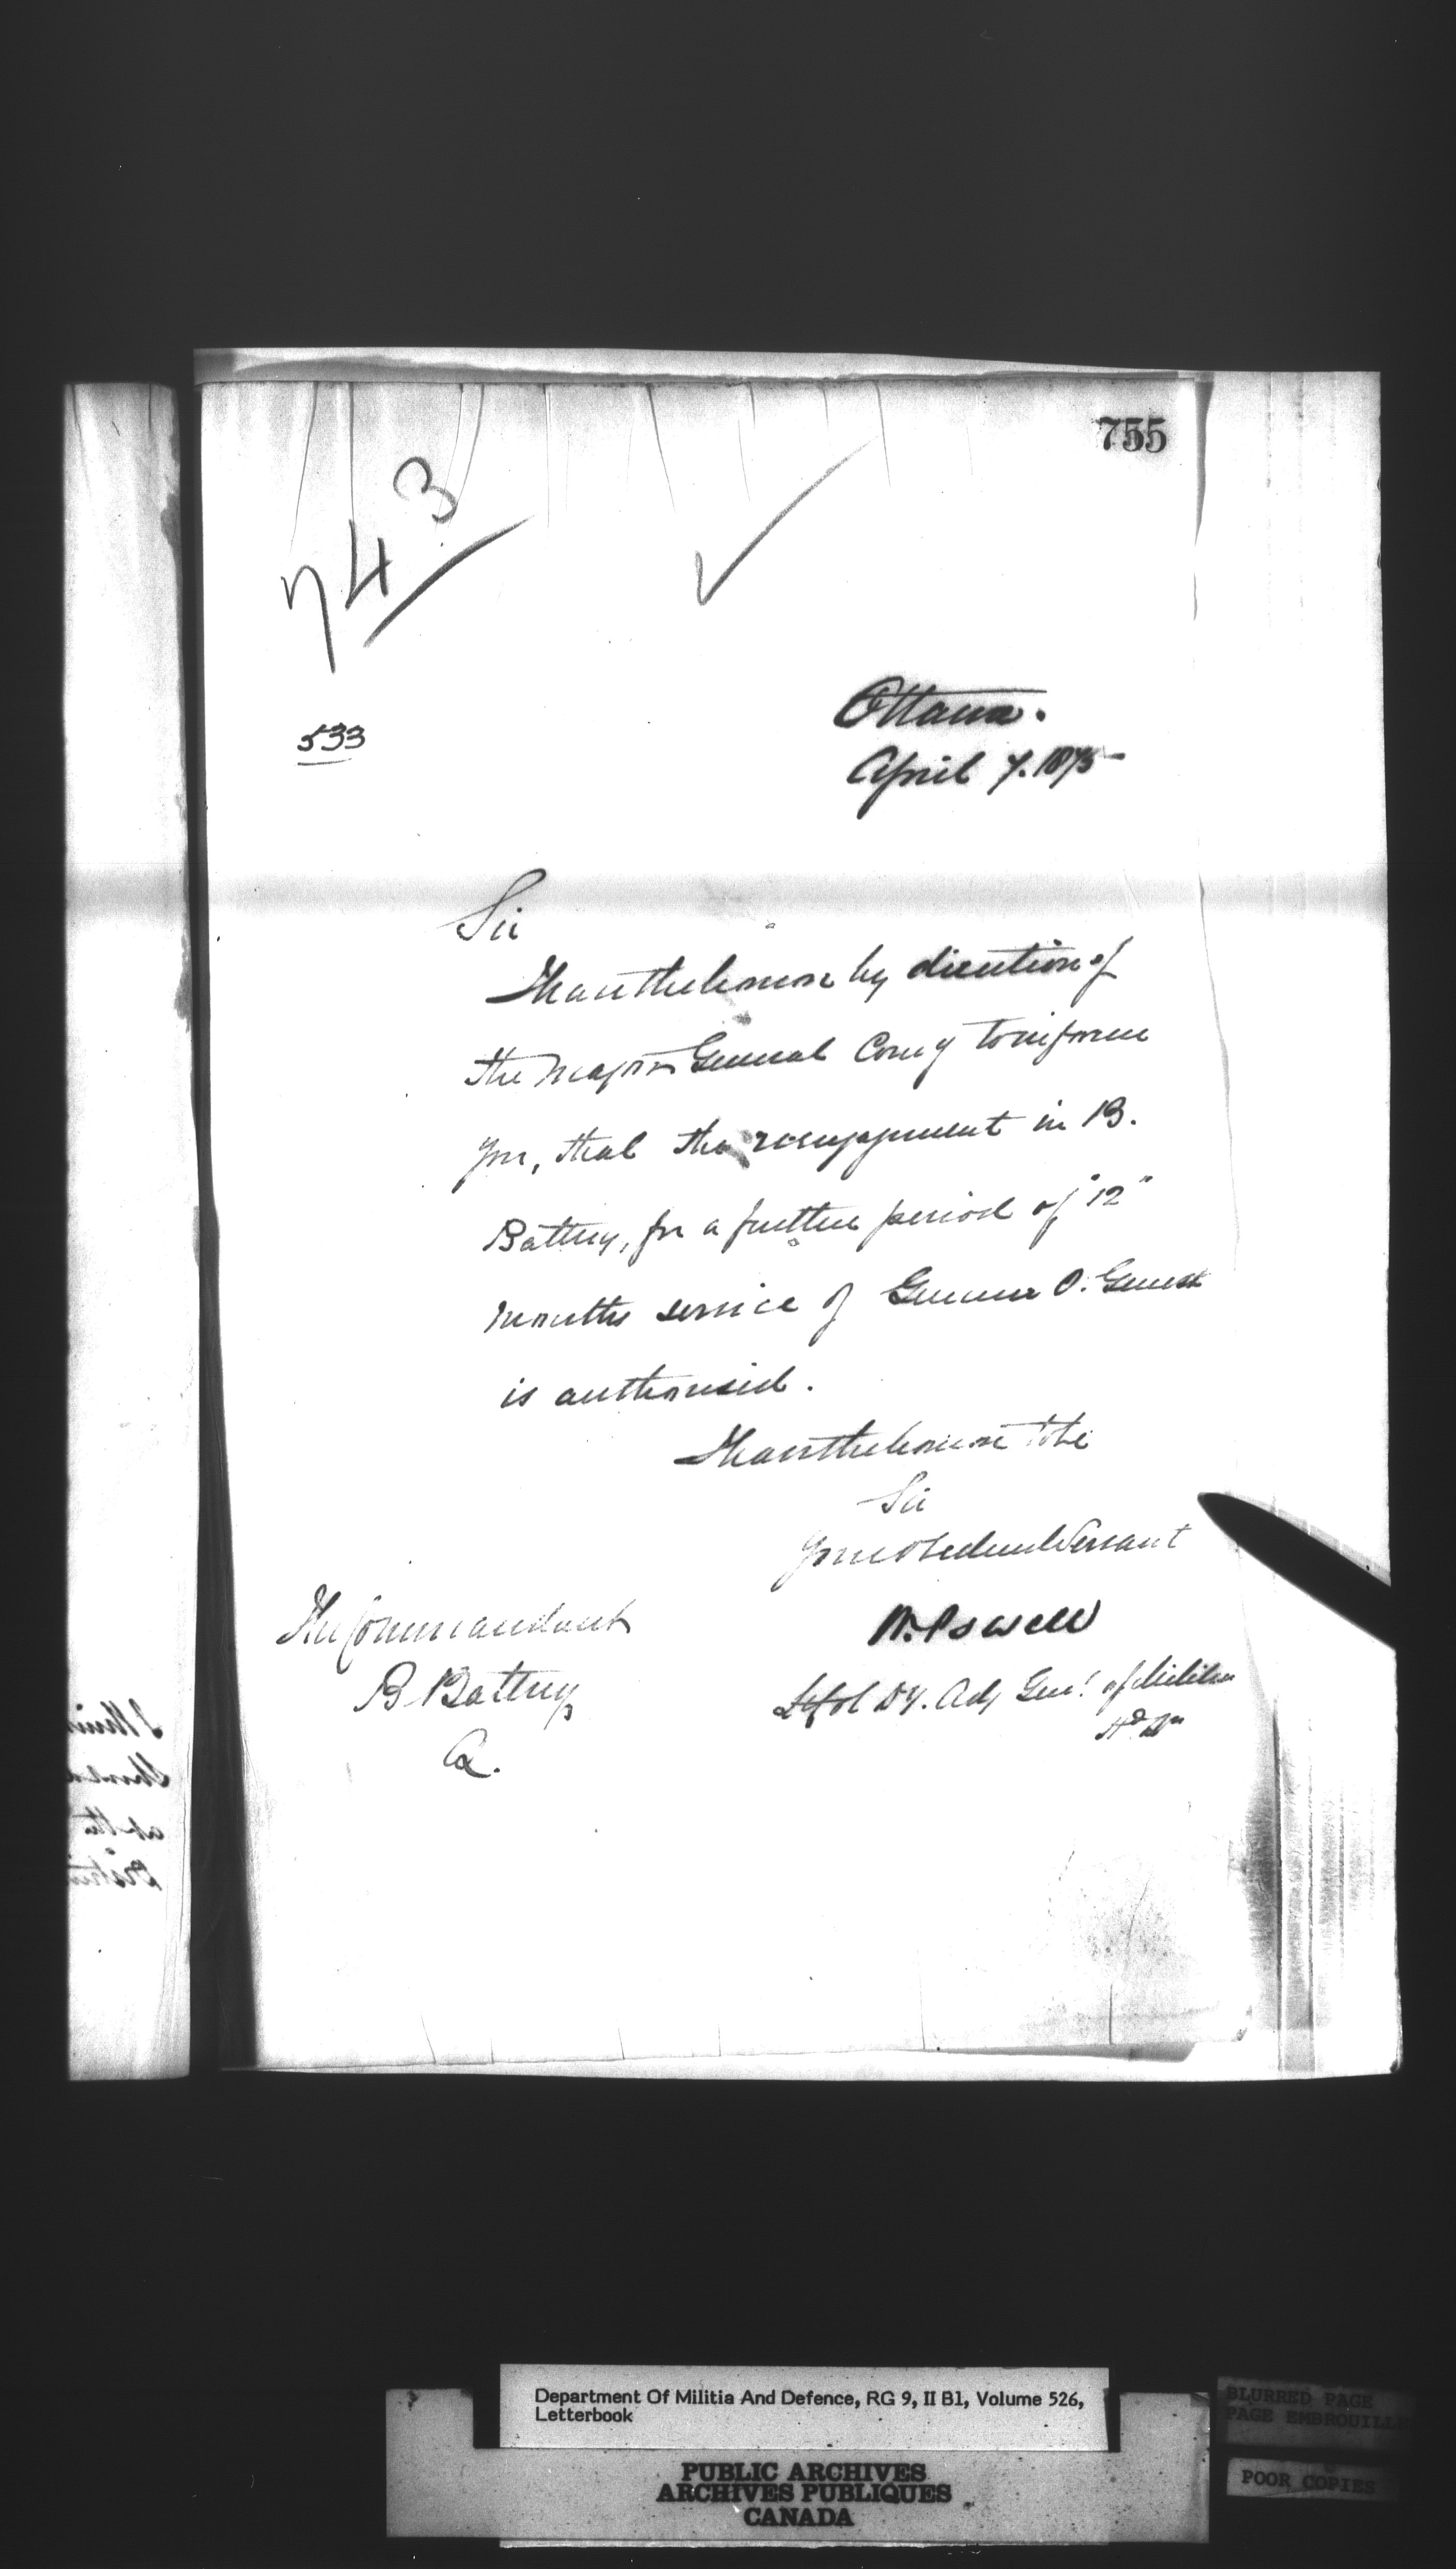 755
743
533
Ottawa.
April 7. 1875
Sir
I have the honor by direction of
the Major General Comg to inform
you, that the reengagement in B.
Battery, for a further period of "12"
months service of Gunner O. Genest
is authorised.
I have the honor to be
Sir
Your obedient Servant
W. Powell
Lt Col Dy. Adj Genl of Militia
Hd Qrs
The Commandant
B Battery
Q.
Department Of Militia And Defence, RG 9, II B1, Volume 526,
Letterbook
PUBLIC ARCHIVES
ARCHIVES PUBLIQUES
CANADA
BLURRED PAGE
PAGE EMBROUILL
POOR COPIES